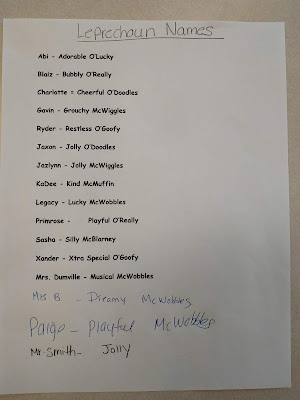 Leprechaun Names
Abi - Adorable O'Lucky
Blaiz - Bubbly O'Really
Charlotte = Cheerful O'Doodles
Gavin - Grouchy McWiggles
Ryder - Restless O'Goofy
Jaxon - Jolly O'Doodles
Jazlynn - Jolly McWiggles
KaDee - Kind McMuffin
Legacy - Lucky McWobbles
Primrose - Playful O'Really
Sasha - Silly McBlarney
Xander - Xtra Special O'Goofy
Mrs. Dumville - Musical McWobbles
Mrs B - Dreamy McWobbles
Paige - Playful McWobbles
Mr. Smith - Jolly